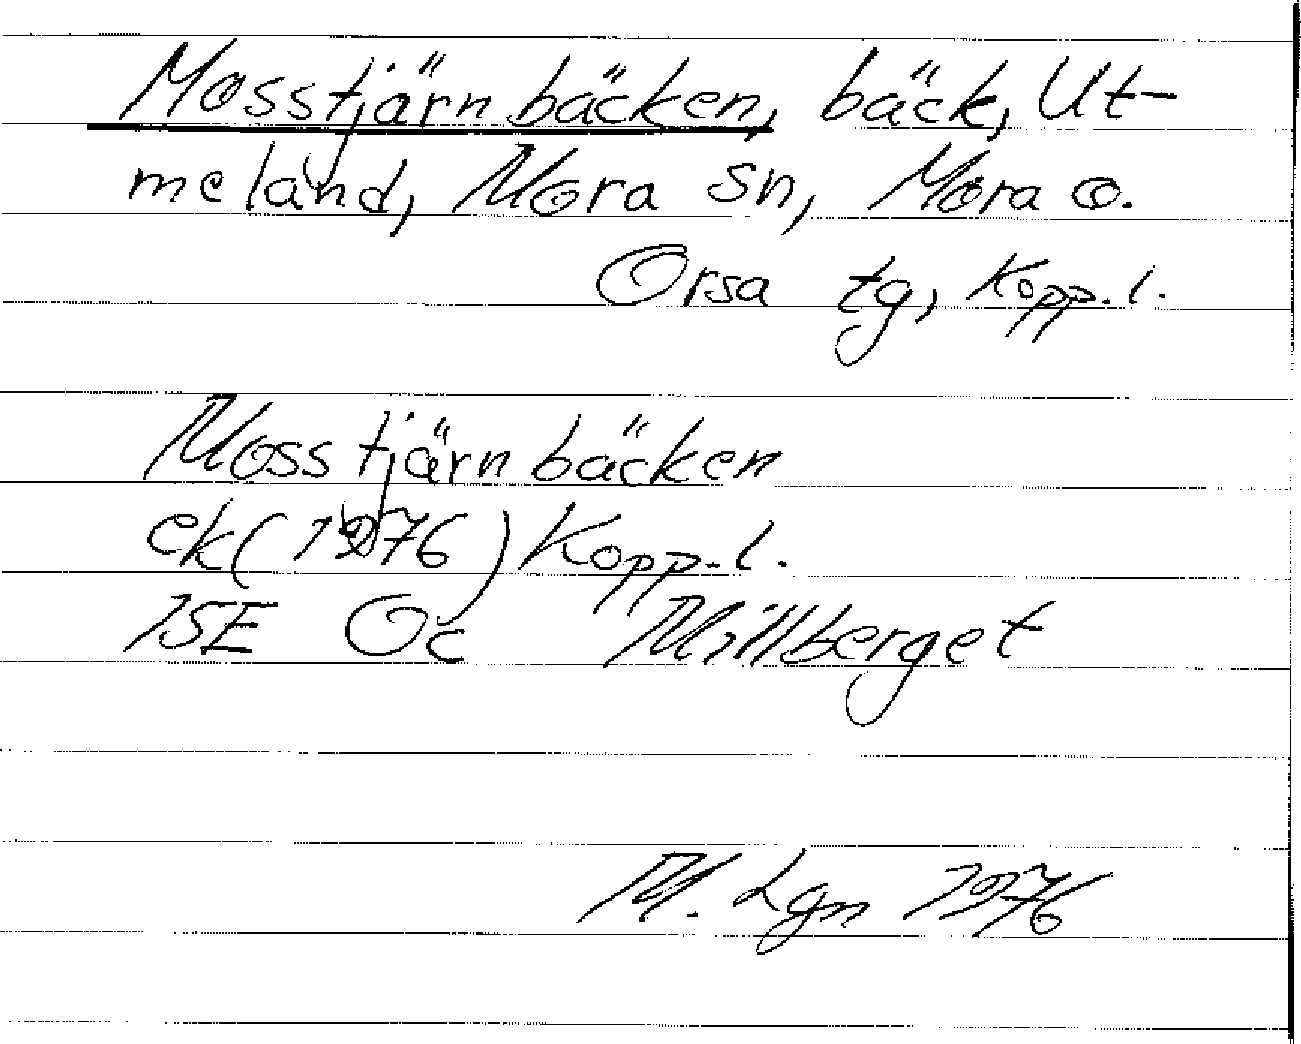 Mosstjärnbäcken, bäck, Ut-
meland, Mora sn, Mora o.
Orsa tg, Kopp. l.
Mosstjärnbäcken
ek (1976) Kopp. l.
15E Oc Millberget
M. Lgn 1976